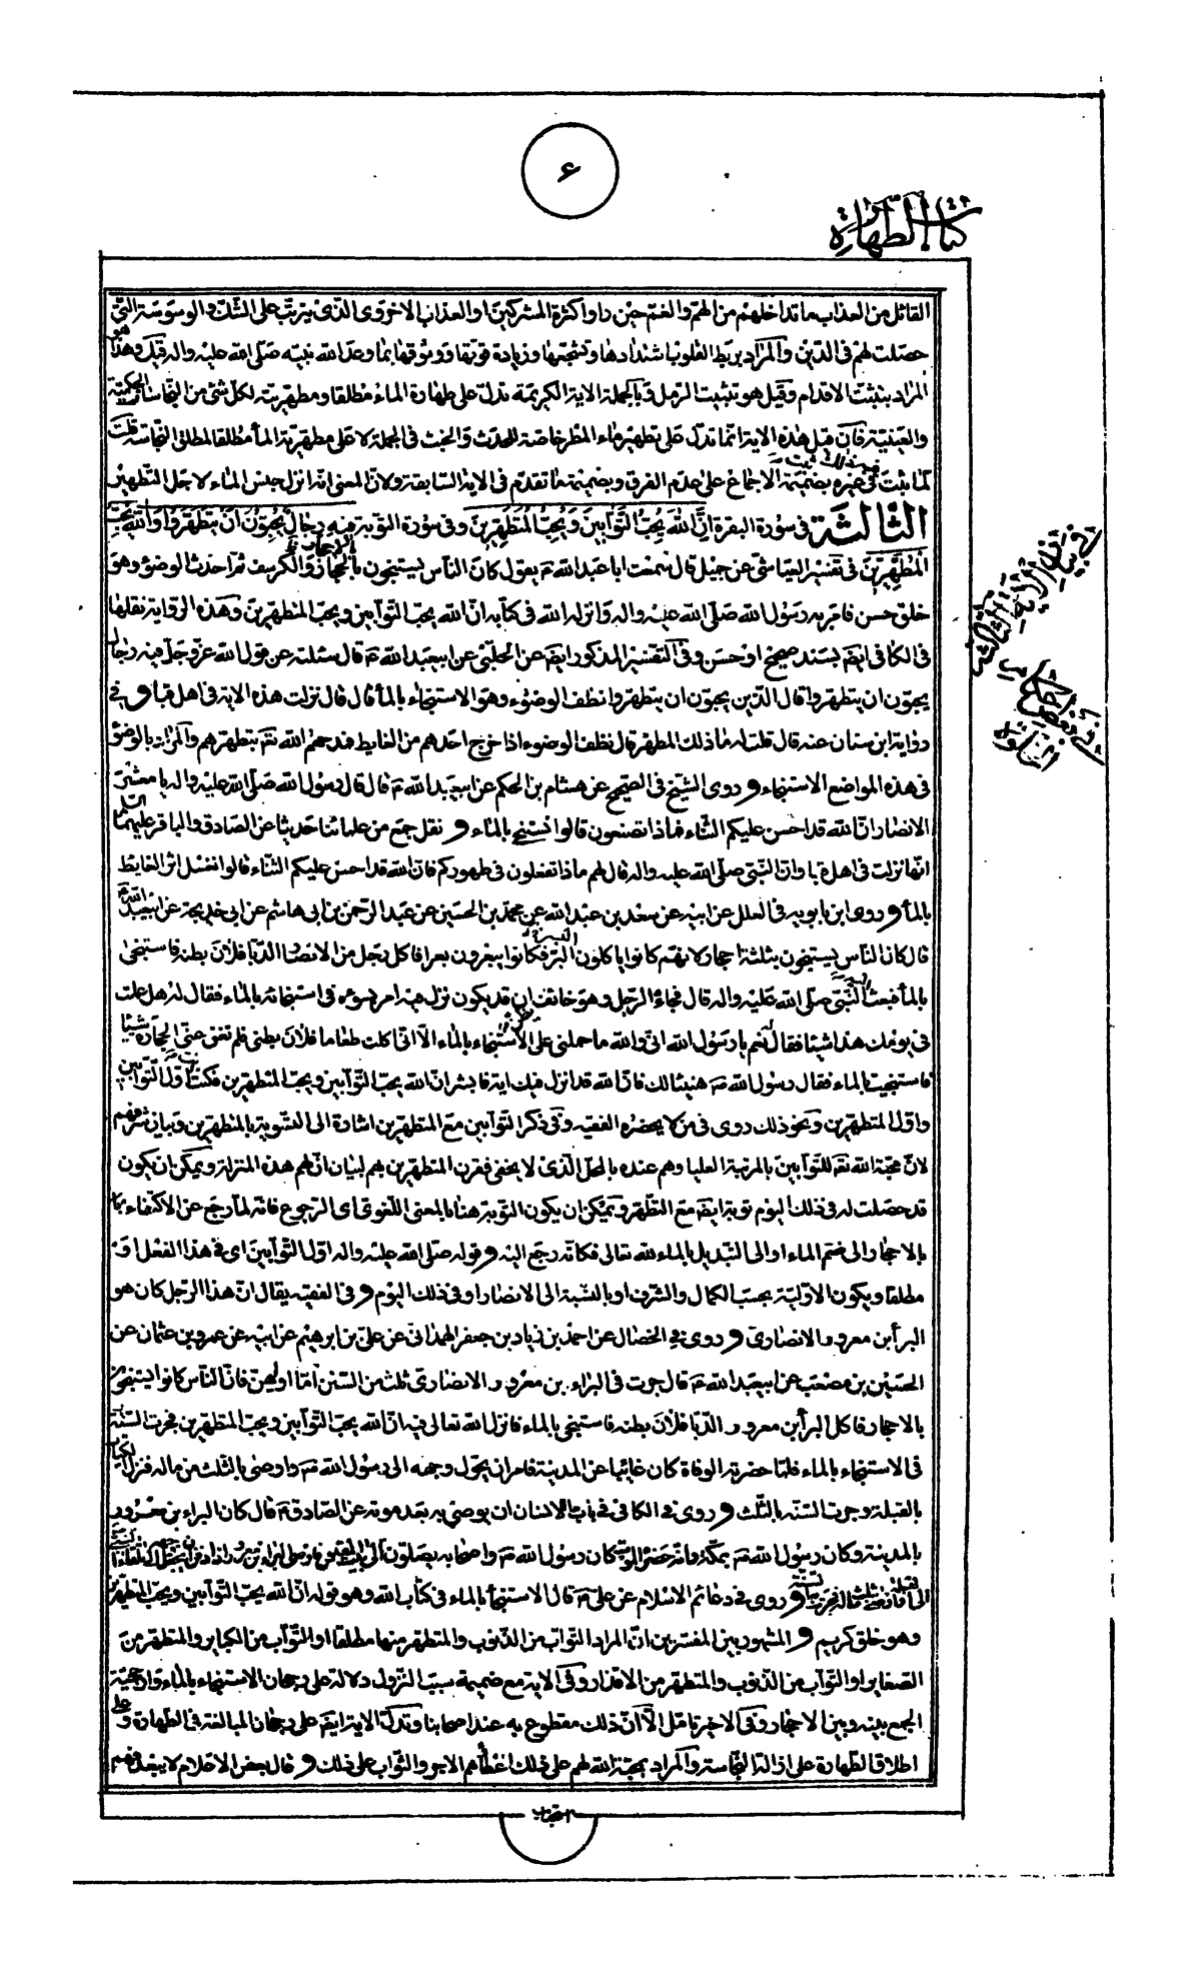 ۶
كتاب الطهارة
القائل من العذاب ما تداخلهم من الهم والغم حين راوا كثرة المشركين او العذاب الاخروى الذى يترتب على الشك والوسوسة التى
حصلت لهم فى الدين والمراد بربط القلوب اشتدادها وتشجعها وزيادة قوتها ووثوقها بما وعد الله نبيه صلى الله عليه واله قيل وهذا هو
المراد بتثبيت الاقدام وقيل هو تثبيت الرمل وبالجملة الاية الكريمة تدل على طهارة الماء مطلقا ومطهريته لكل شئ من النجاسات الحكمية
والعينية فان قيل هذه الاية انما تدل على تطهير ماء المطر خاصة للحدث والخبث فى الجملة لا على مطهرية الماء مطلقا لمطلق النجاسة قلت
لما ثبت فى غيره بضميمة الاجماع على عدم الفرق وبضميمة ما تقدم فى الاية السابقة ولان المعنى انه انزل جنس الماء لاجل التطهير
الثالثة فى سورة البقرة ان الله يحب التوابين ويحب المتطهرين وفى سورة التوبة فيه رجال يحبون ان يتطهروا والله يحب
المطهرين فى تفسير العياشى عن جميل قال سمعت ابا عبد الله ع يقول كان الناس يستنجون بالحجارة والكرسف ثم احدث الوضوء وهو
خلق حسن فامر به رسول الله صلى الله عليه واله وانزله الله فى كتابه ان الله يحب التوابين ويحب المتطهرين وهذه الرواية نقلها
فى الكافى ايضا بسند صحيح او حسن وفى التفسير المذكور ايضا عن الحلبى عن ابيعبد الله ع قال سئلته عن قول الله عز وجل فيه رجال
يحبون ان يتطهروا قال الذين يحبون ان يتطهروا نظف الوضوء وهو الاستنجاء بالماء قال قال نزلت هذه الاية فى اهل قبا وفى
رواية ابن سنان عنه قال قلت له ما ذلك المطهر قال نظف الوضوء اذا خرج احدهم من الغايط فمدحهم الله تعه بتطهرهم والمراد بالوضوء
فى هذه المواضع الاستنجاء وروى الشيخ فى الصحيح عن هشام بن الحكم عن ابيعبد الله ع قال قال رسول الله صلى الله عليه واله يا معشر
الانصار ان الله قد احسن عليكم الثناء فماذا تصنعون قالوا نستنجى بالماء ونقل جمع من علمائنا حديثا عن الصادق والباقر عليهما السلام
انها نزلت فى اهل قبا وان النبى صلى الله عليه واله قال لهم ماذا تفعلون فى طهوركم فان الله قد احسن عليكم الثناء قالوا نغسل اثر الغايط
بالماء وروى ابن بابويه فى العلل عن ابيه عن سعد بن عبد الله عن محمد بن الحسين عن عبد الرحمن بن ابى هاشم عن ابى خديجة عن ابيعبد الله ع
قال كان الناس يستنجون بثلثة احجار لانهم كانوا ياكلون البسر فكانوا يبعرون بعرا فاكل رجل من الانصار الدبا فلان بطنه فاستنجى
بالماء فبعث اليه النبى صلى الله عليه واله قال فجاء الرجل وهو خائف ان قد يكون نزل فيه امر يسوءه فى استنجائه بالماء فقال له هل علمت
فى يومك هذا شيئا فقال نعم يا رسول الله انى والله ما حملنى على الاستنجاء بالماء الا انى اكلت طعاما فلان بطنى فلم تغن عنى الحجارة شيئا
فاستنجيت بالماء فقال رسول الله ص هنيئا لك فان الله قد انزل فيك اية فابشر ان الله يحب التوابين ويحب المتطهرين فكنت اول التوابين
واول المتطهرين ونحو ذلك روى فى من لا يحضره الفقيه وفى ذكر التوابين مع المتطهرين اشارة الى التسوية بالمتطهرين وبيان شرفهم
لان محبة الله تعه للتوابين بالمرتبة العليا وهم عنده بالمحل الذى لا يخفى فقرن المتطهرين بهم لبيان ان لهم هذه المنزلة ويمكن ان يكون
قد حصلت له فى ذلك اليوم توبة ايضا مع التطهر ويمكن ان يكون التوبة هنا بالمعنى اللغوى اى الرجوع فانه لما رجع عن الاكتفاء
بالاحجار الى ضم الماء او الى التبديل بالماء لله تعالى فكانه رجع اليه وقوله صلى الله عليه واله اول التوابين اى فى هذا الفعل او
مطلقا ويكون الاولية بحسب الكمال والشرف او بالنسبة الى الانصار او فى ذلك اليوم وفى الفقيه يقال ان هذا الرجل كان هو
البراء بن معرور الانصارى وروى فى الخصال عن احمد بن زياد بن جعفر الهمدانى عن على بن ابرهيم عن ابيه عن عمرو بن عثمان عن
الحسين بن مصعب عن ابيعبد الله ع قال جرت فى البراء بن معرور الانصارى ثلث من السنن اما اوليهن فان الناس كانوا يستنجون
بالاحجار فاكل البراء بن معرور الدبا فلان بطنه فاستنجى بالماء فانزل الله تعالى فيه ان الله يحب التوابين ويحب المتطهرين فجرت السنة
فى الاستنجاء بالماء فلما حضرته الوفاة كان غائبا عن المدينة فامر ان يحول وجهه الى رسول الله ص واوصى بالثلث من ماله فنزل الكتاب
بالقبلة وجرت السنة بالثلث وروى فى الكافى فى باب ما للانسان ان يوصى به بعد موته عن الصادق ع قال كان البراء بن معرور
بالمدينة وكان رسول الله ص بمكة وانه حضره الموت كان رسول الله ص واصحابه يصلون الى بيت المقدس فاوصى البراء بن معرور
الى القبلة فجرت به السنة وروى فى دعائم الاسلام عن على ع قال الاستنجاء بالماء فى كتاب الله وهو قوله ان الله يحب التوابين ويحب المتطهرين
وهو خلق كريم والمشهور بين المفسرين ان المراد التواب من الذنوب والمتطهر منها مطلقا او التواب من الكباير والمتطهر من
الصغاير او التواب من الذنوب والمتطهر من الاقذار وفى الاية مع ضميمة سبب النزول دلالة على رجحان الاستنجاء بالماء وارجحية
الجمع بينه وبين الاحجار وفى الاخير تامل الا ان ذلك مقطوع به عند اصحابنا وتدل الاية ايضا على رجحان المبالغة فى الطهارة وعلى
اطلاق الطهارة على ازالة النجاسة والمراد بمحبة الله لهم على ذلك اعظام الاجر والثواب على ذلك وقال بعض الاعلام لا يبعد فهم
فى بيان نزول الاية الثالثة